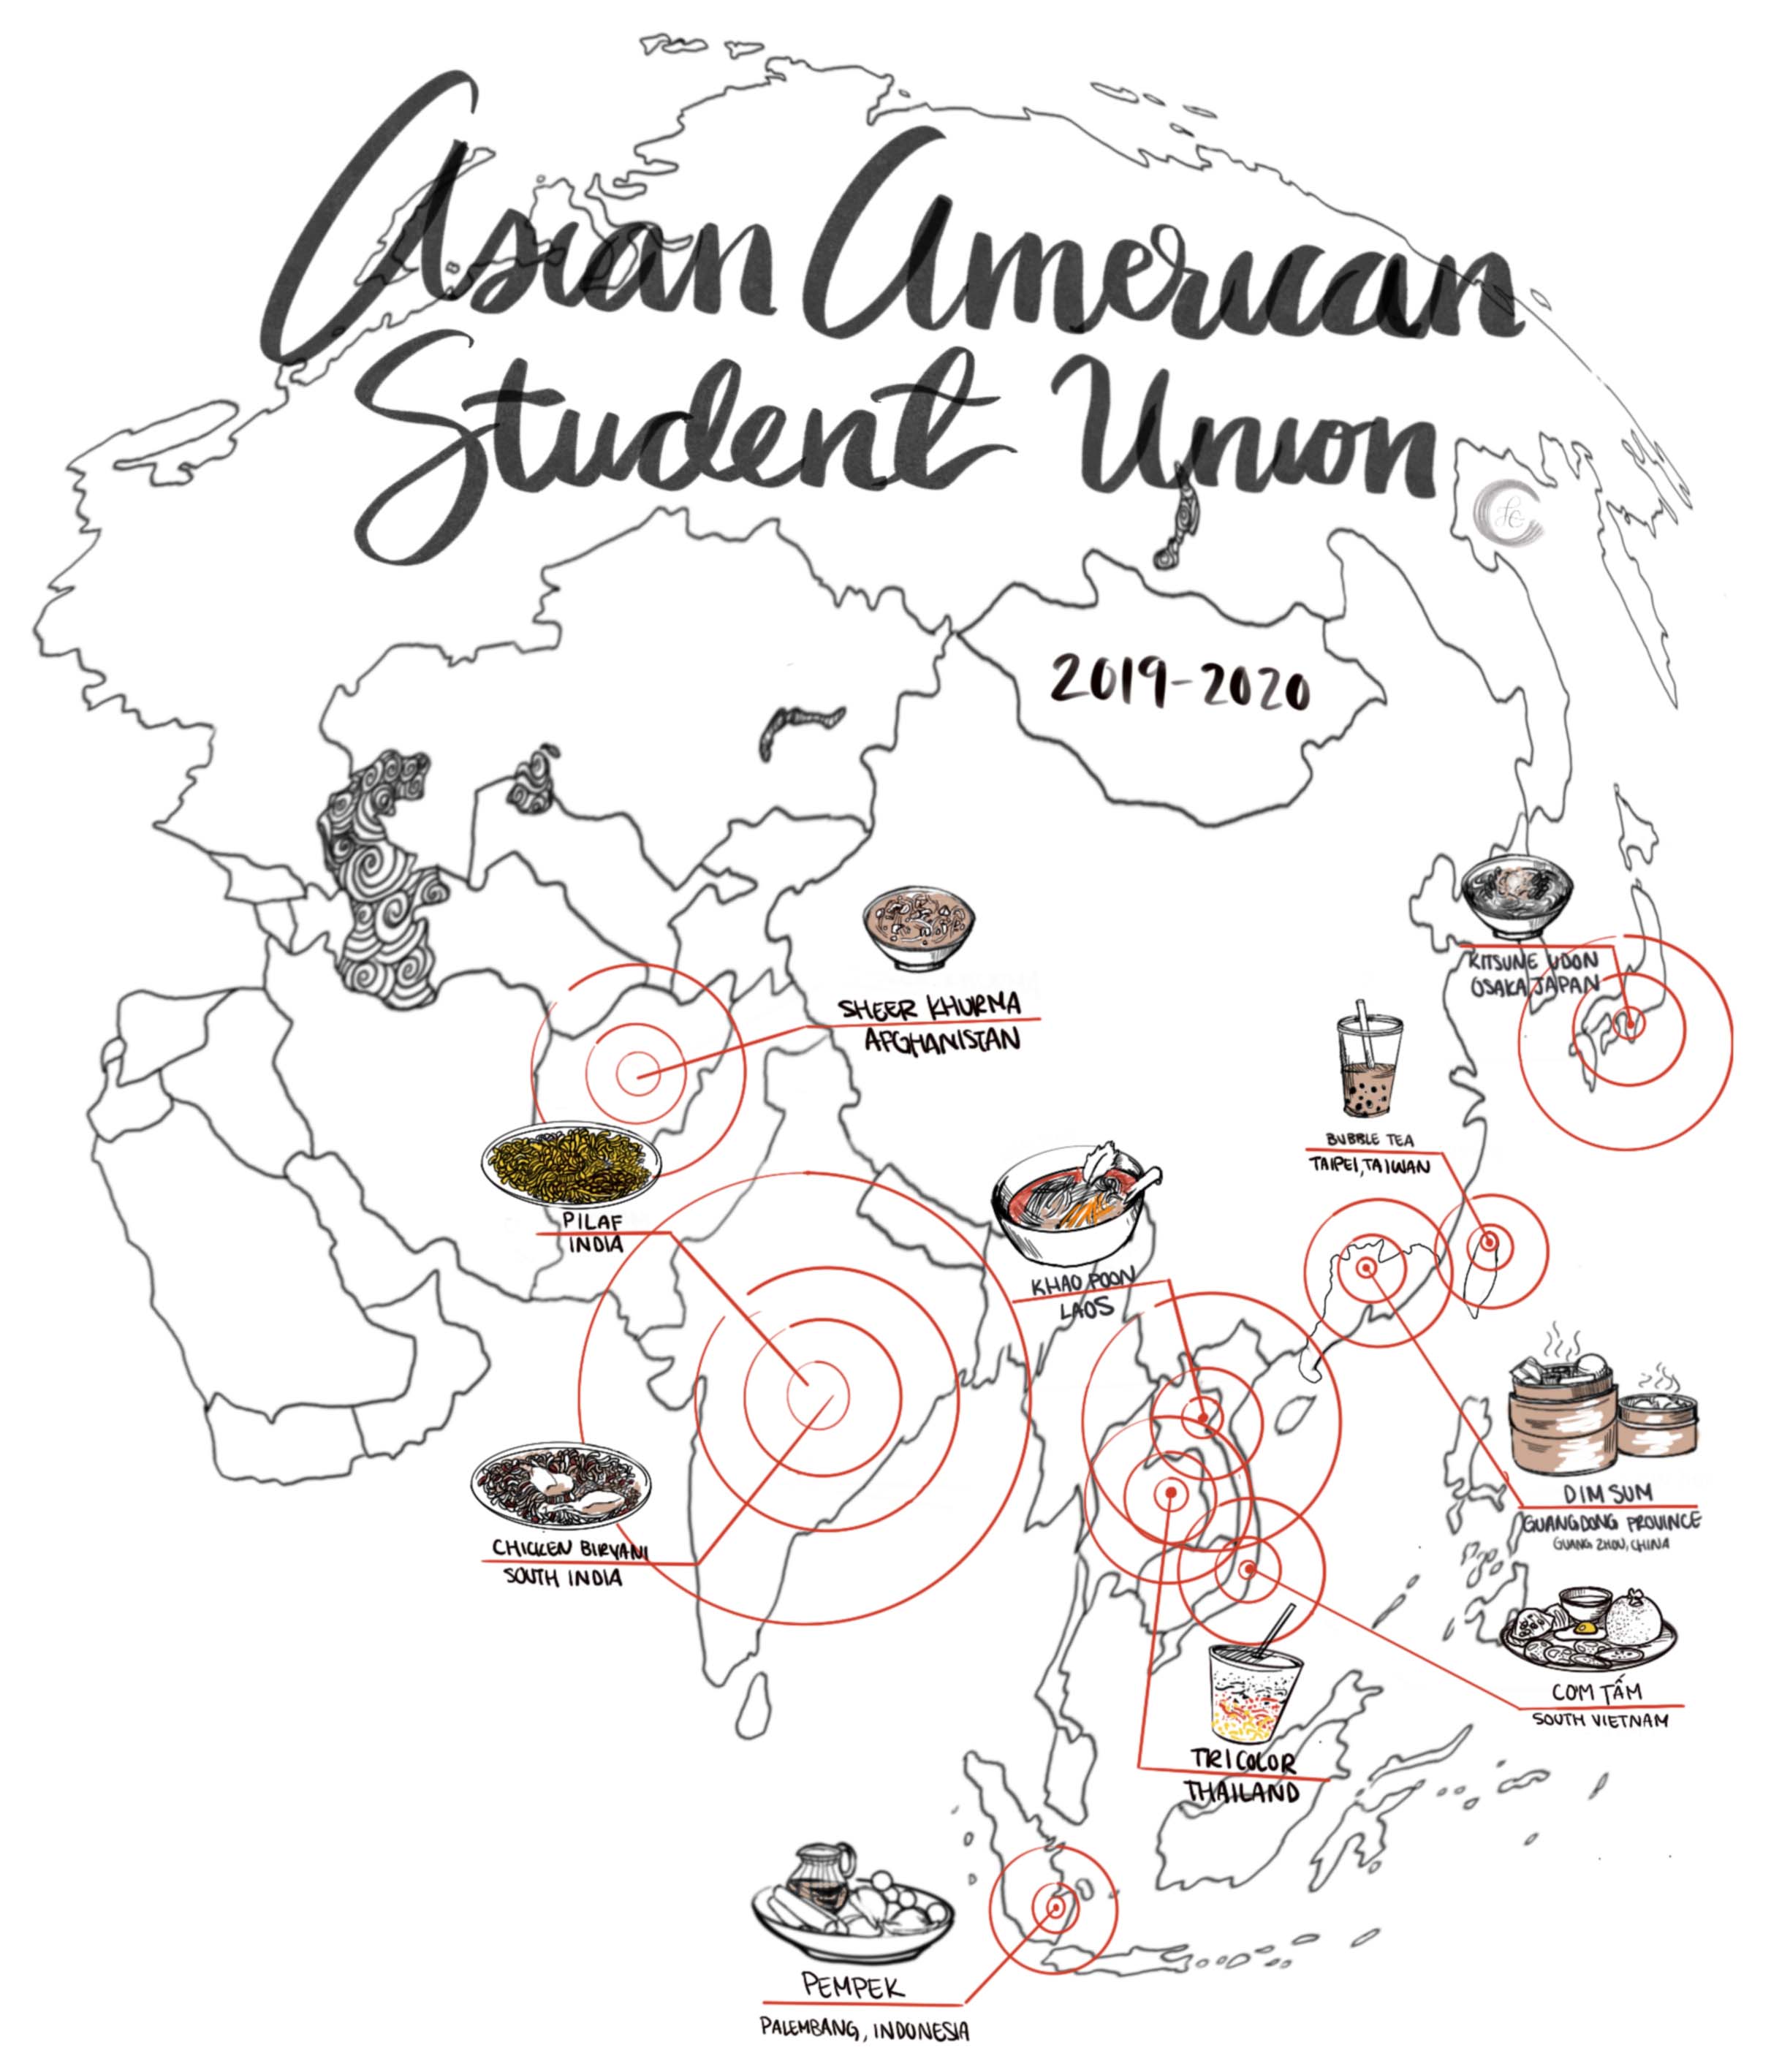 Asian American
Student Union
2019-2020
SHEER KHURMA
AFGHANISTAN
KITSUNE UDON
OSAKA, JAPAN
BUBBLE TEA
TAIPEI, TAIWAN
PILAF
INDIA
KHAO POON
LAOS
DIM SUM
GUANGDONG PROVINCE
GUANG ZHOU, CHINA
CHICKEN BIRYANI
SOUTH INDIA
CƠM TẤM
SOUTH VIETNAM
TRICOLOR
THAILAND
PEMPEK
PALEMBANG, INDONESIA